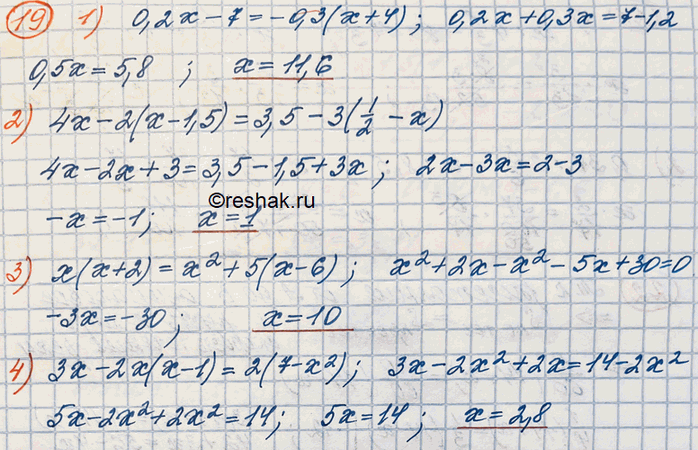 19 1) 0,2x-7=-0,3(x+4); 0,2x+0,3x=7-1,2
0,5x=5,8 ; x=11,6
2) 4x-2(x-1,5)=3,5-3(1/2-x)
4x-2x+3=3,5-1,5+3x; 2x-3x=2-3
-x=-1; x=1
©reshak.ru
3) x(x+2)=x²+5(x-6); x²+2x-x²-5x+30=0
-3x=-30; x=10
4) 3x-2x(x-1)=2(7-x²); 3x-2x²+2x=14-2x²
5x-2x²+2x²=14; 5x=14; x=2,8